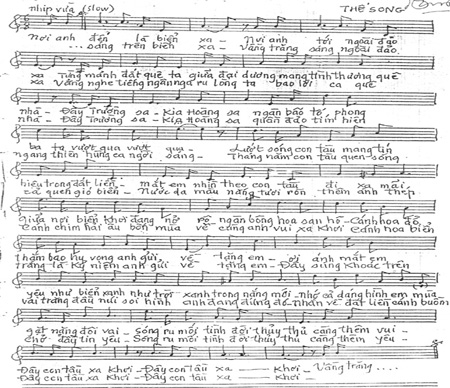 nhịp vừa (slow) THẾ SONG
Nơi anh đến là biển xa - Nơi anh tới ngoài đảo
... sóng trên biển xa - Vầng trăng sáng ngoài đảo
xa Từng mảnh đất quê ta giữa đại dương mang tình thương quê
xa Vẳng nghe tiếng ngân nga ru lòng ta bao lời ca quê
nhà - Đây Trường sa - Kia Hoàng sa ngàn bão tố phong
nhà - Đây Trường sa - Kia Hoàng sa quần đảo tìm hiện
ba ta vượt qua vượt qua - Lướt sóng con tàu mang tín
ngang thiên hùng ca ngời sáng - Tháng năm con tàu quen sóng
hiệu trong đất liền - mắt em nhìn theo con tàu đi xa mãi
cả quen gió biển - Nước da màu nắng tươi rồn thêm ánh thép
giữa nơi biển khơi đang nở rộ ngàn bông hoa san hô - Cánh hoa đỏ
cánh chim hải âu bốn mùa về càng anh vui xa khơi Cánh hoa biển
thắm bao hy vọng anh gửi về - tặng em - ơi ánh mắt em
trắng là kỷ niệm anh gửi về tặng em - Đây súng khoác trên
yêu như biển xanh như trời xanh trong nắng mới - nhớ cả dáng hình em mùa
vai trăng đầu núi soi hình anh đang đứng đó, nhắn về đất liền cánh buồm
gặt nặng đôi vai - sóng ru mối tình đời thủy thủ càng thêm vui -
chở đầy tin yêu - Sóng ru mối tình đời thủy thủ càng thêm yêu -
Đây con tàu xa khơi - Đây con tàu xa khơi - Vầng trăng ....
Đây con tàu xa khơi - Đây con tàu xa khơi -